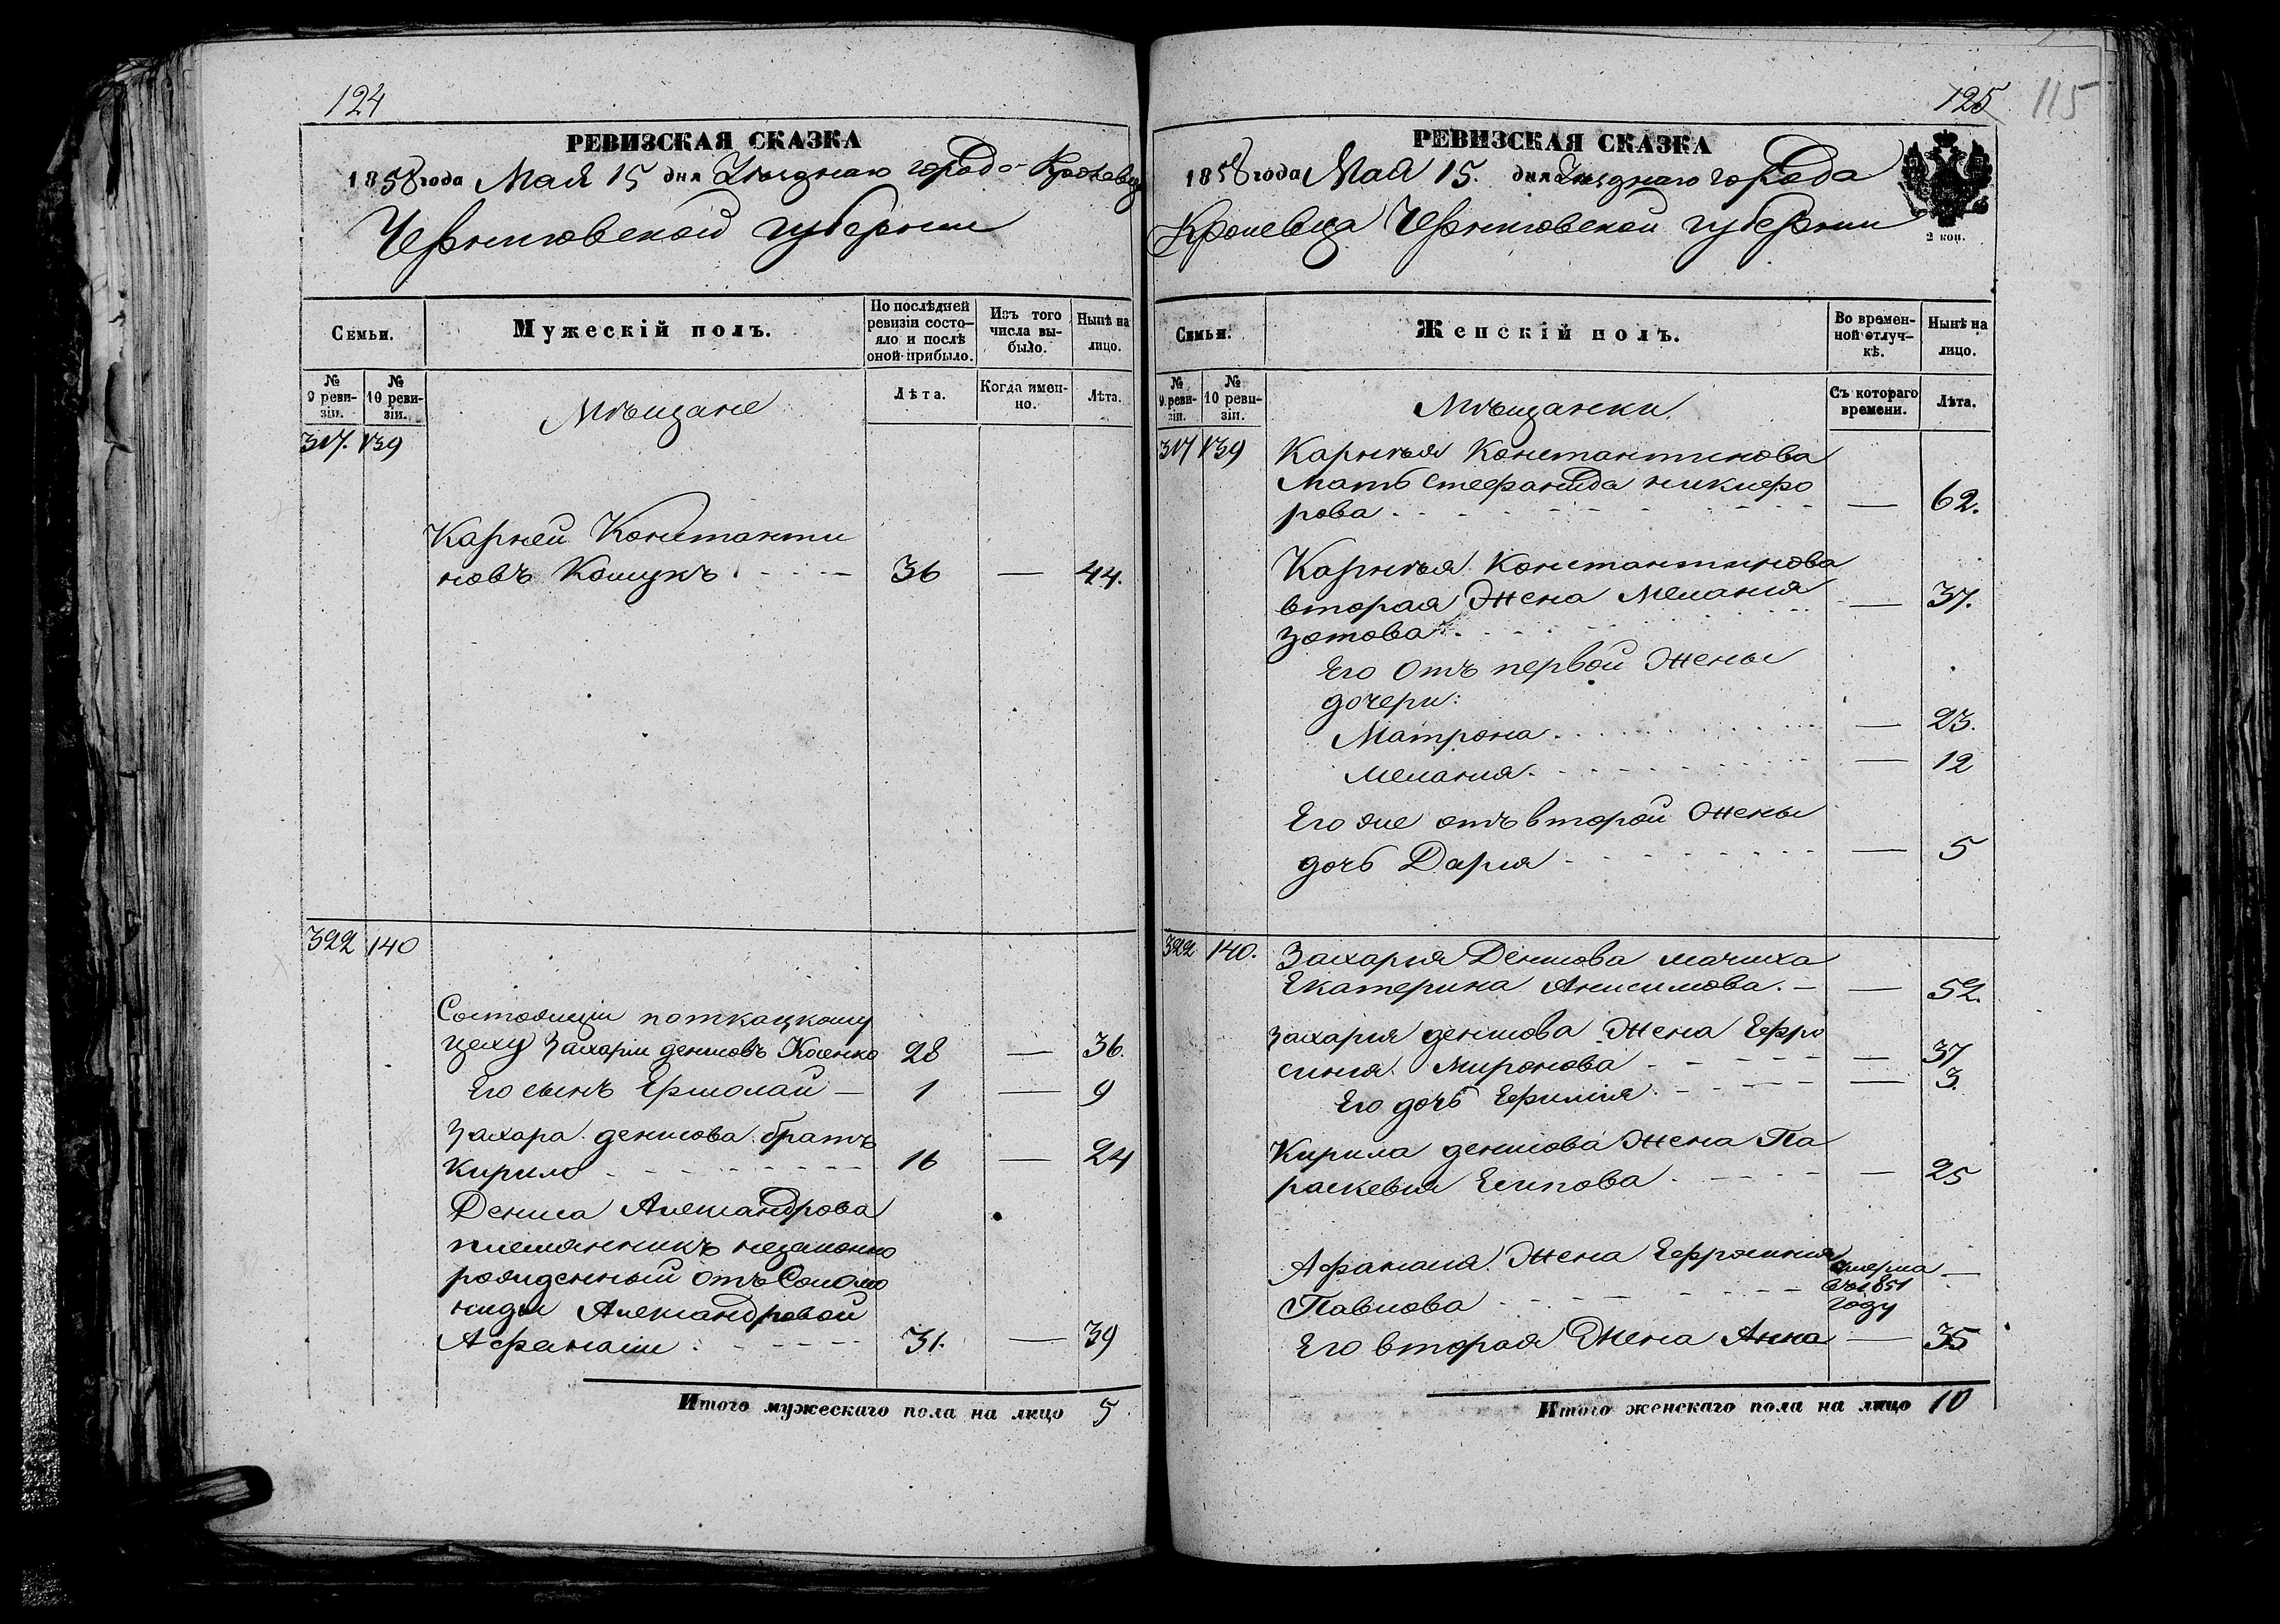 124
РЕВИЗСКАЯ СКАЗКА
1858 года Мая 15 дня Уѣзднаго города Кролевца
Черниговской губернии
Семьи.
Мужескій полъ.
По послѣдней ревизіи состо-
яло и послѣ оной прибыло.
Изъ того числа вы-
было.
Нынѣ на лицо.
№ 9 реви-
зіи.
№ 10 реви-
зіи.
Мѣщане
Лѣта.
Когда имен-
но.
Лѣта.
317. 139
Карней Константи
новъ Кошукъ 36 — 44.
322 140
Состоящии поткацкому
цеху Захаріи денисовъ Косенко 28 — 36.
Его сынъ Ермолай — 1 — 9
Захара денисова братъ
Кирило 16 — 24
Дениса Александрова
племянникъ незаконно
рожденный отъ Соломо
ниды Александровой
Афанасіи 31. — 39
Итого мужескаго пола на лицо 5
125
115
РЕВИЗСКАЯ СКАЗКА
1858 года Мая 15. дня Уѣзднаго города
Кролевца Черниговской губернии
2 коп.
Семьи.
Женскій полъ.
Во времен-
ной отлуч-
кѣ.
Нынѣ на лицо.
№ 9 реви-
зіи.
№ 10 реви-
зіи.
Мѣщанки.
Съ котораго времени.
Лѣта.
317 139 Карнѣя Константинова
Мать Стефанида никифо
рова — 62.
Карнѣя Константинова
вторая Жена Мелания — 37.
Зотова
Его Отъ первой Жены
дочери:
Матрона — 23.
Мелания — 12
Его же отъ второй Жены
дочь Дария — 5
322 140. Захария Денисова мачиха
Екатерина Анисимова. — — 52.
Захария денисова Жена Ефро
синия Миронова — 37
Его дочь Ефимия — 3.
Кирила денисова Жена Па
раскевия Есипова — 25
Афанасия Жена Ефросиния умерла —
въ 1851
Павлова году
Его вторая Жена Анна — 35
Итого женскаго пола на лицо 10